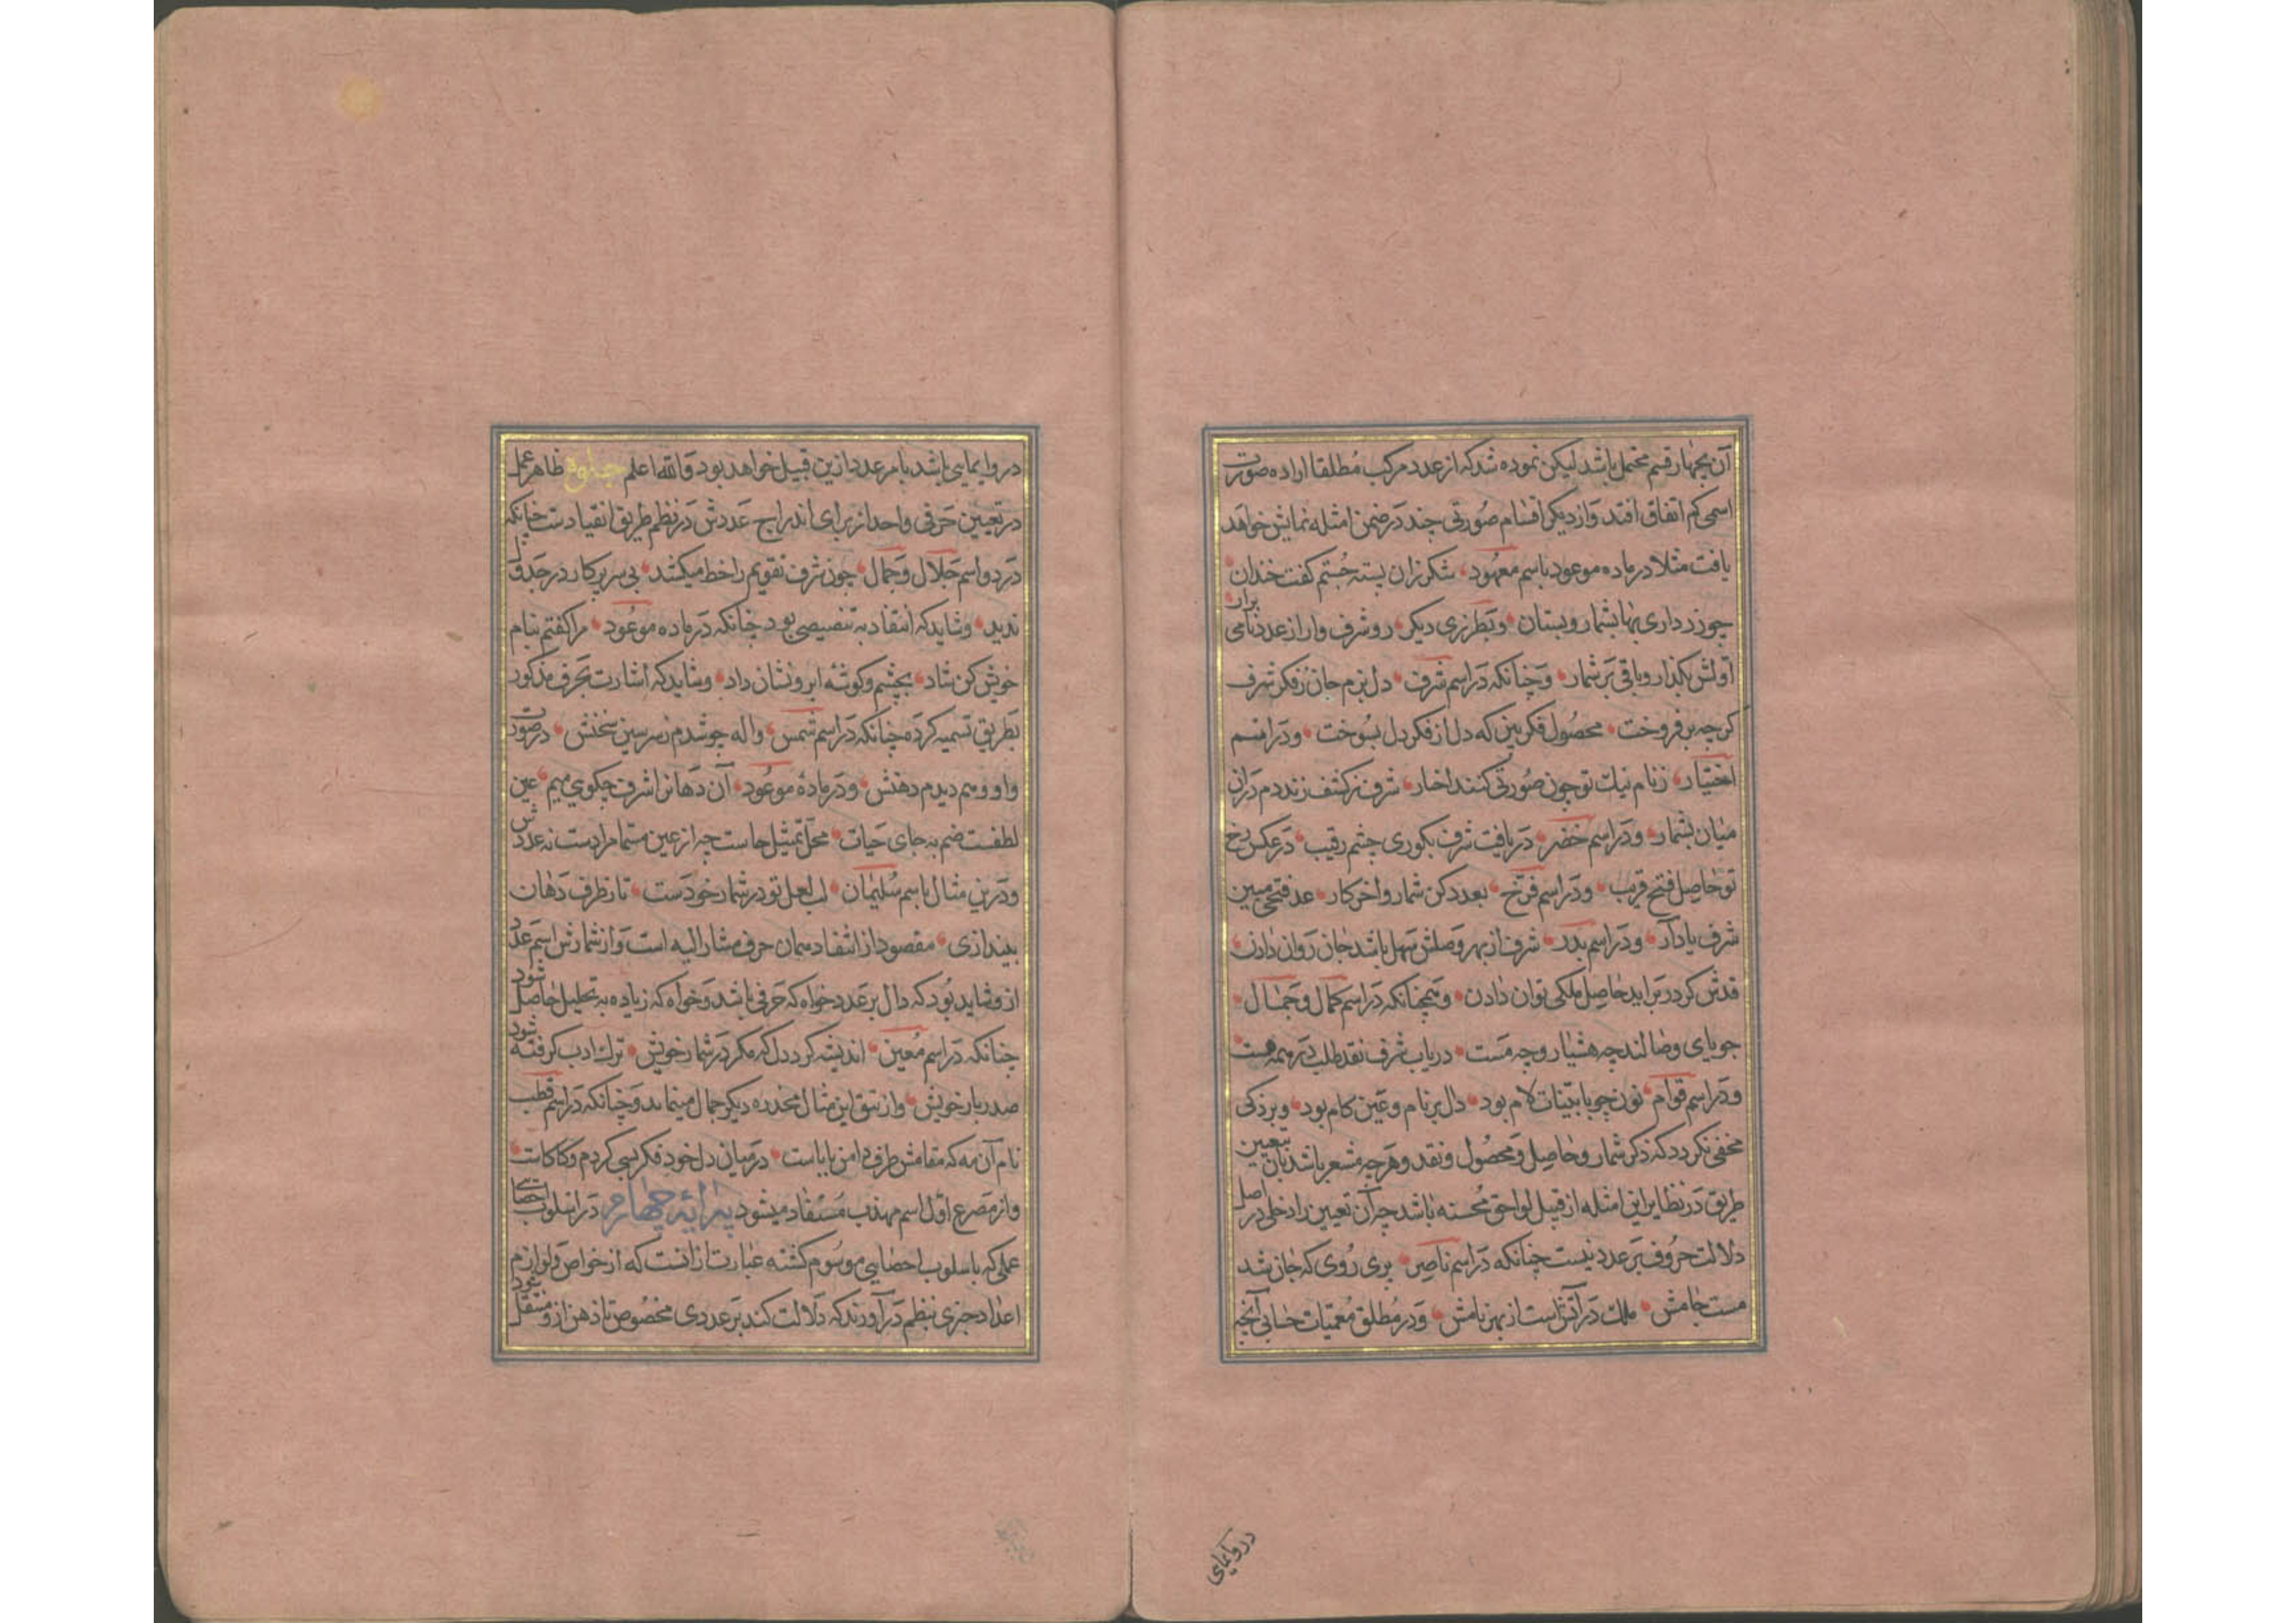 آن بچهار قسم محتمل باشد لیکن نموده شد که از عدد مرکب مطلقا اراده صورت
اسمی کم اتفاق افتد و از دیگر اقسام صورتی چند در ضمن امثله نمایش خواهد
یافت مثلا در ماده موعود باسم معهود شکر زان پسته جستم گفت خندان
چو زر داری بها بشمار و بستان و بطرزی دیگر رو شرف وار از عدد نامی برار
اولش بگذار و باقی بر شمار و چنانکه در اسم شرف دل بزم جان ز فکر شرف
گرچه بر فروخت محصول فکر بین که دل از فکر دل بسوخت و در اسم
اختیار ز نام نیک تو چون صورتی کنند اخبار شرف ز کشف زند دم در آن
میان بشمار و در اسم خضر دریافت شرف بکوری چشم رقیب در عکس رخ
تو حاصل فتح قریب و در اسم فرخ بعدد کن شمار و اخر کار عد فتحی مبین
شرف یاد آر و در اسم بدر شرف از بهر وصلش سهل باشد جان روان دادن
قدش گر در بر اید حاصل ملکی توان دادن و همچنانکه در اسم کمال و جمال
جویای وصالند چه هشیار و چه مست دریاب شرف نقد طلب در همه هست
و در اسم قوام نون چو با بینات لام بود دال بر نام و عین کام بود و بر ذکی
مخفی نکردد که ذکر شمار و حاصل و محصول و نقد و هرچه مشعر باشد بان تعیین
طریق در نظایر این امثله از قبیل لواحق محسنه باشد چه آن تعیین را دخلی در اصل
دلالت حروف بر عدد نیست چنانکه در اسم ناصر پری روی که جان شد
مست جامش ملک در آتش است از بهر نامش و در مطلق معمیات حسابی آنچه
در وایمایی
در و ایمایی باشد بامر عدد ازین قبیل خواهد بود و الله اعلم جلوة ظاهر عمل
در تعیین حرفی واحد از برای اندراج عددش در نظم طریق انقیادست چنانکه
در دو اسم جلال و جمال چون شرف تقویم را خط میکشد بی سر پرکار در جدول
ندید و شاید که انتقاد به تنصیصی بود چنانکه در ماده موعود مرا گفتم بنام
خویش کن شاد بچشم و گوشه ابرو نشان داد و شاید که اشارت بحرف مذکور
بطریق تسمیه کرده چنانکه در اسم شمس واله چو شدم ز سر سین سخنش در صورت
واو و میم دیدم دهنش و در ماده موعود آن دهان را شرف چگویی میم عین
لطفست ضم به جای حیات محل تمثیل جاست چه از عین مسما مرادست نه عددش
و درین مثال باسم سلیمان لب لعل تو در شمار خودست تا ز طرف دهان
بیندازی مقصود از انتقاد همان حرف مشار الیه است و از شمارش اسم عدد
از و شاید بود که دال بر عدد خواه که حرفی باشد و خواه که زیاده به تحلیل حاصل شود
چنانکه در اسم معین اندیشه کرد دل که مگر در شمار خویش ترک ادب گرفته شود
صد ربار خویش و از تتق این مثال مخدره دیگر جمال مینماید و چنانکه در اسم قطب
نام آن مه که مقامش طرف دامن باباست در میان دل خود فکر بسی کردم و کاکاست
و از مصرع اول اسم مهذب مستفاد میشود پیرایه چهارم در اسلوب احصایی
عملی که باسلوب احصایی موسوم گشته عبارت از انست که از خواص و لوازم
اعداد چیزی بنظم در آورند که دلالت کند بر عددی مخصوص تا ذهن ازو منتقل شود